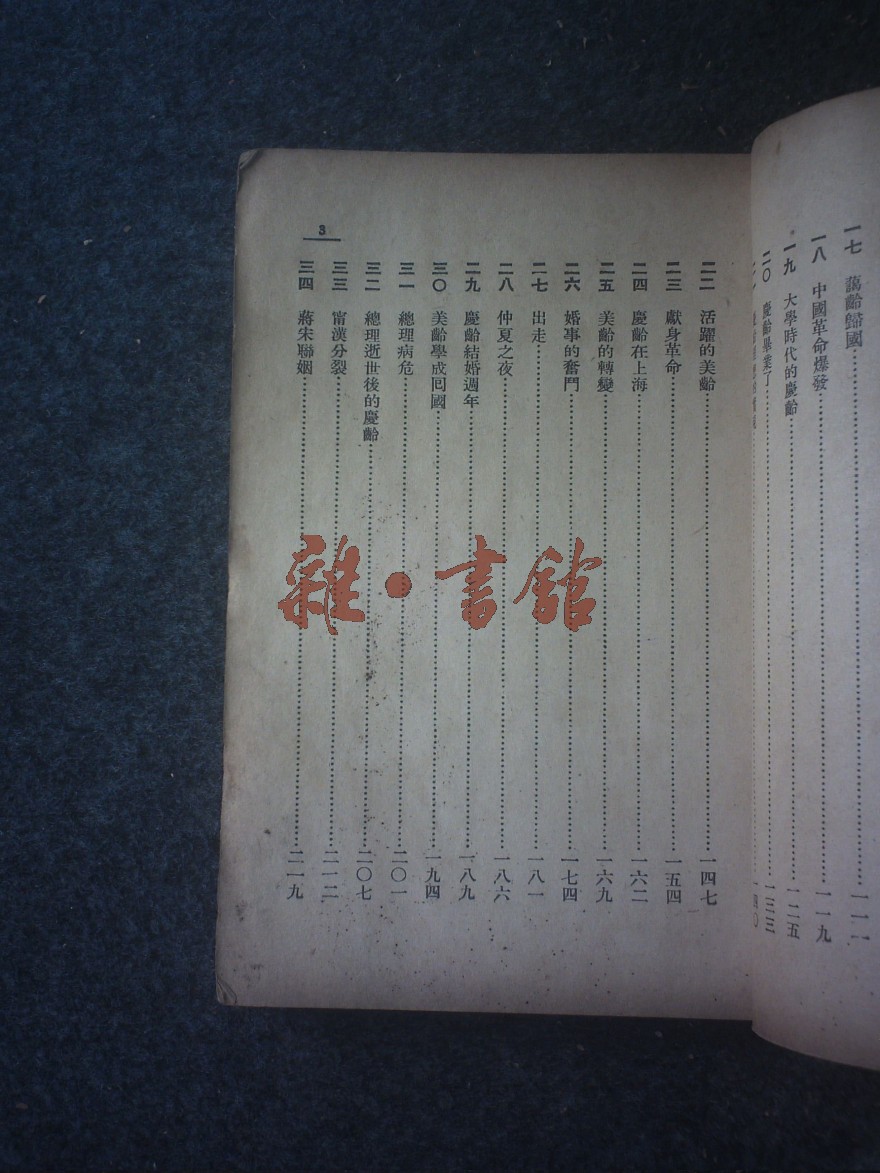 一七 藹齡歸國 一一一
一八 中國革命爆發 一一九
一九 大學時代的慶齡 一二五
二〇 慶齡畢業了 一三三
一四〇
二二 活躍的美齡 一四七
二三 獻身革命 一五四
二四 慶齡在上海 一六二
二五 美齡的轉變 一六九
二六 婚事的奮鬥 一七四
二七 出走 一八一
二八 仲夏之夜 一八六
二九 慶齡結婚週年 一八九
三〇 美齡學成囘國 一九四
三一 總理病危 二〇一
三二 總理逝世後的慶齡 二〇七
三三 甯漢分裂 二一二
三四 蔣宋聯姻 二一九
3
雜·書館